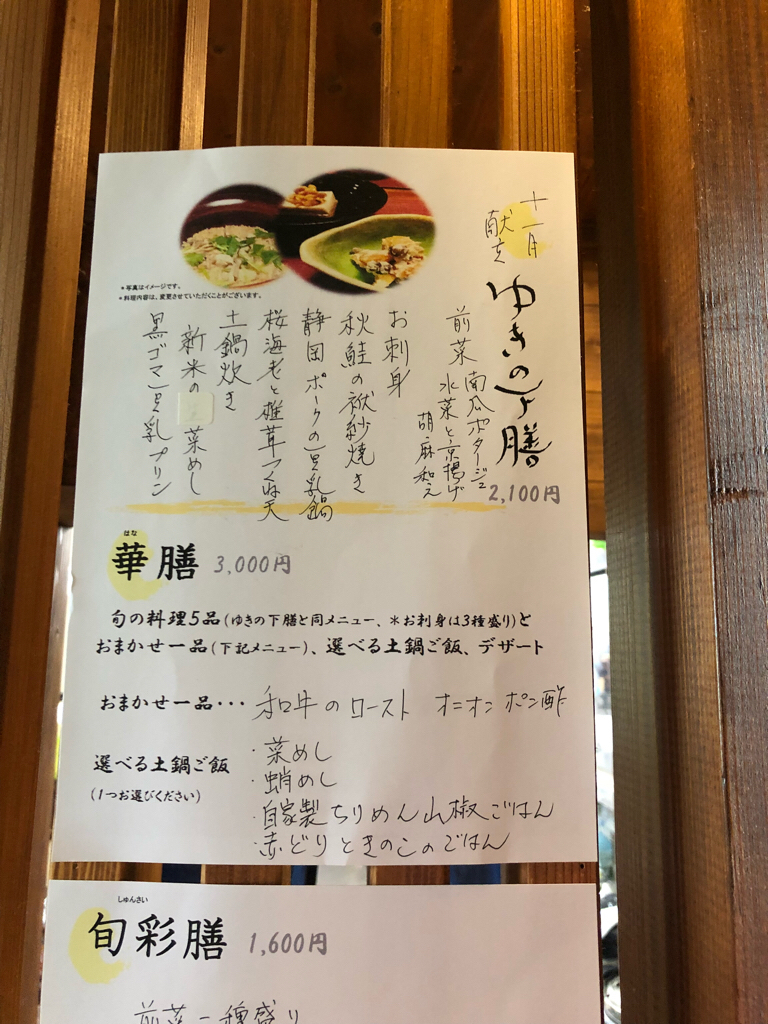 十一月
献立
ゆきの下膳
2,100円
前菜 南瓜ポタージュ
水菜と京揚げ
胡麻和え
お刺身
秋鮭の袱紗焼き
静岡ポークの豆乳鍋
桜海老と椎茸つくね天
土鍋炊き
新米の 菜めし
黒ゴマ豆乳プリン
*写真はイメージです。
*料理内容は、変更させていただくことがございます。
はな
華膳 3,000円
旬の料理5品(ゆきの下膳と同メニュー、*お刺身は3種盛り)と
おまかせ一品(下記メニュー)、選べる土鍋ご飯、デザート
おまかせ一品・・・ 和牛のロースト オニオンポン酢
選べる土鍋ご飯
(1つお選びください)
・菜めし
・蛸めし
・自家製ちりめん山椒ごはん
・赤どりときのこのごはん
しゅんさい
旬彩膳 1,600円
前菜二種盛り